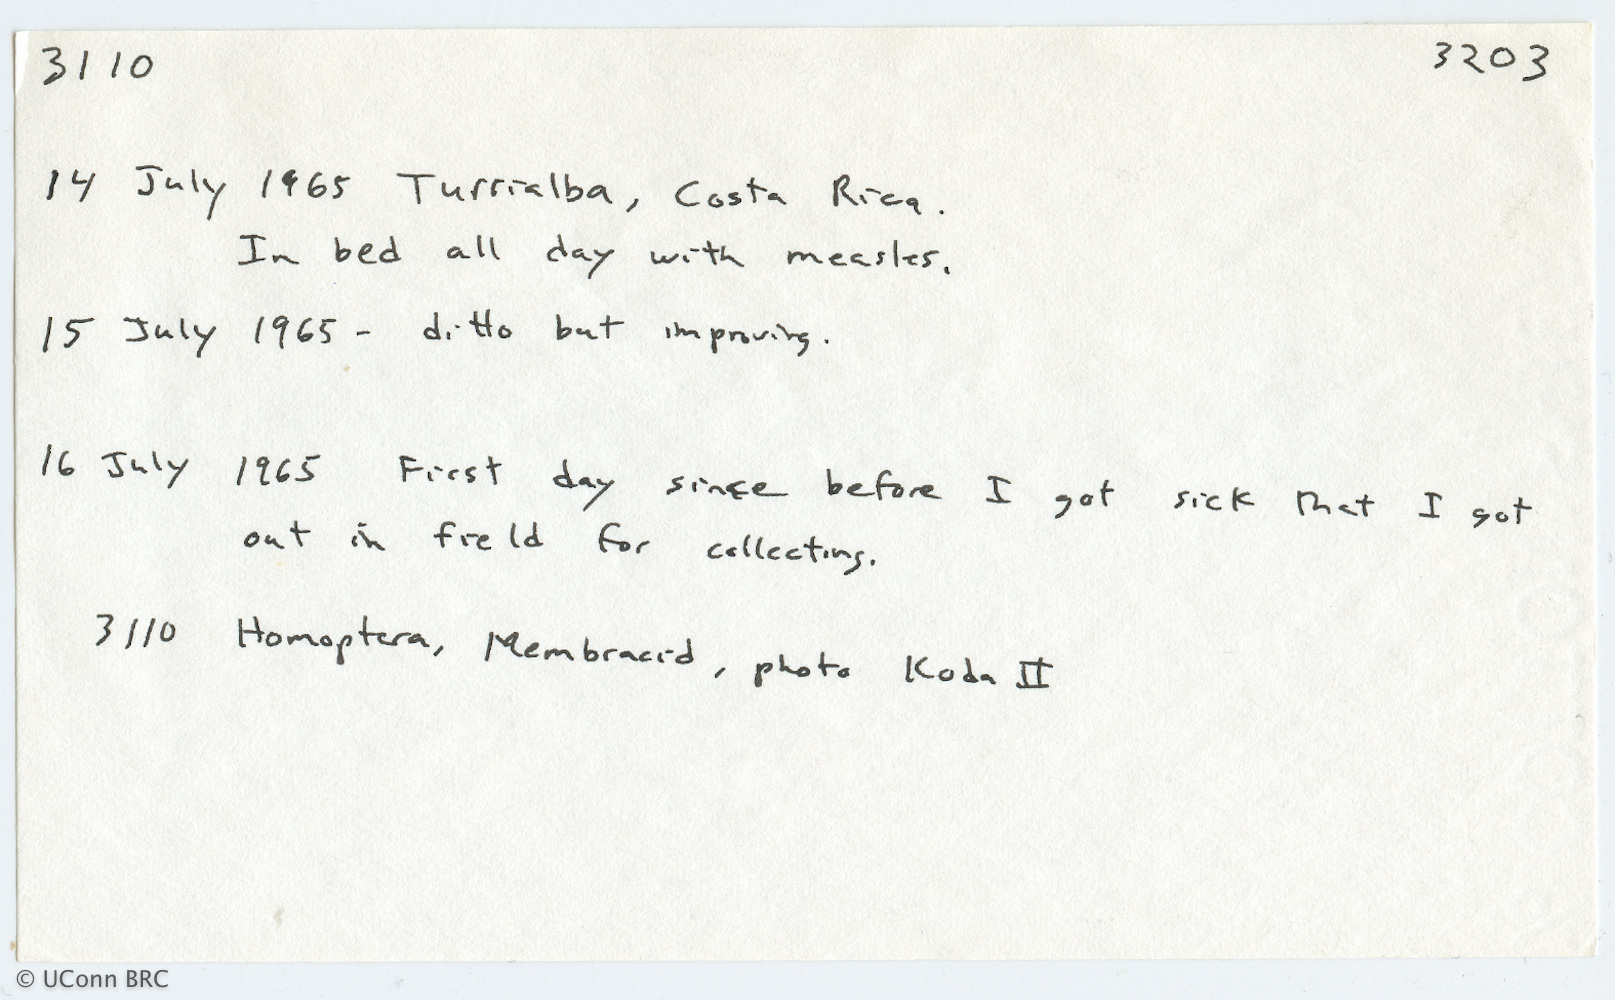 3110 3203
14 July 1965 Turrialba, Costa Rica.
In bed all day with measles.
15 July 1965 - ditto but improving.
16 July 1965 First day since before I got sick that I got
out in field for collecting.
3110 Homoptera, Membracid, photo Koda II
© UConn BRC